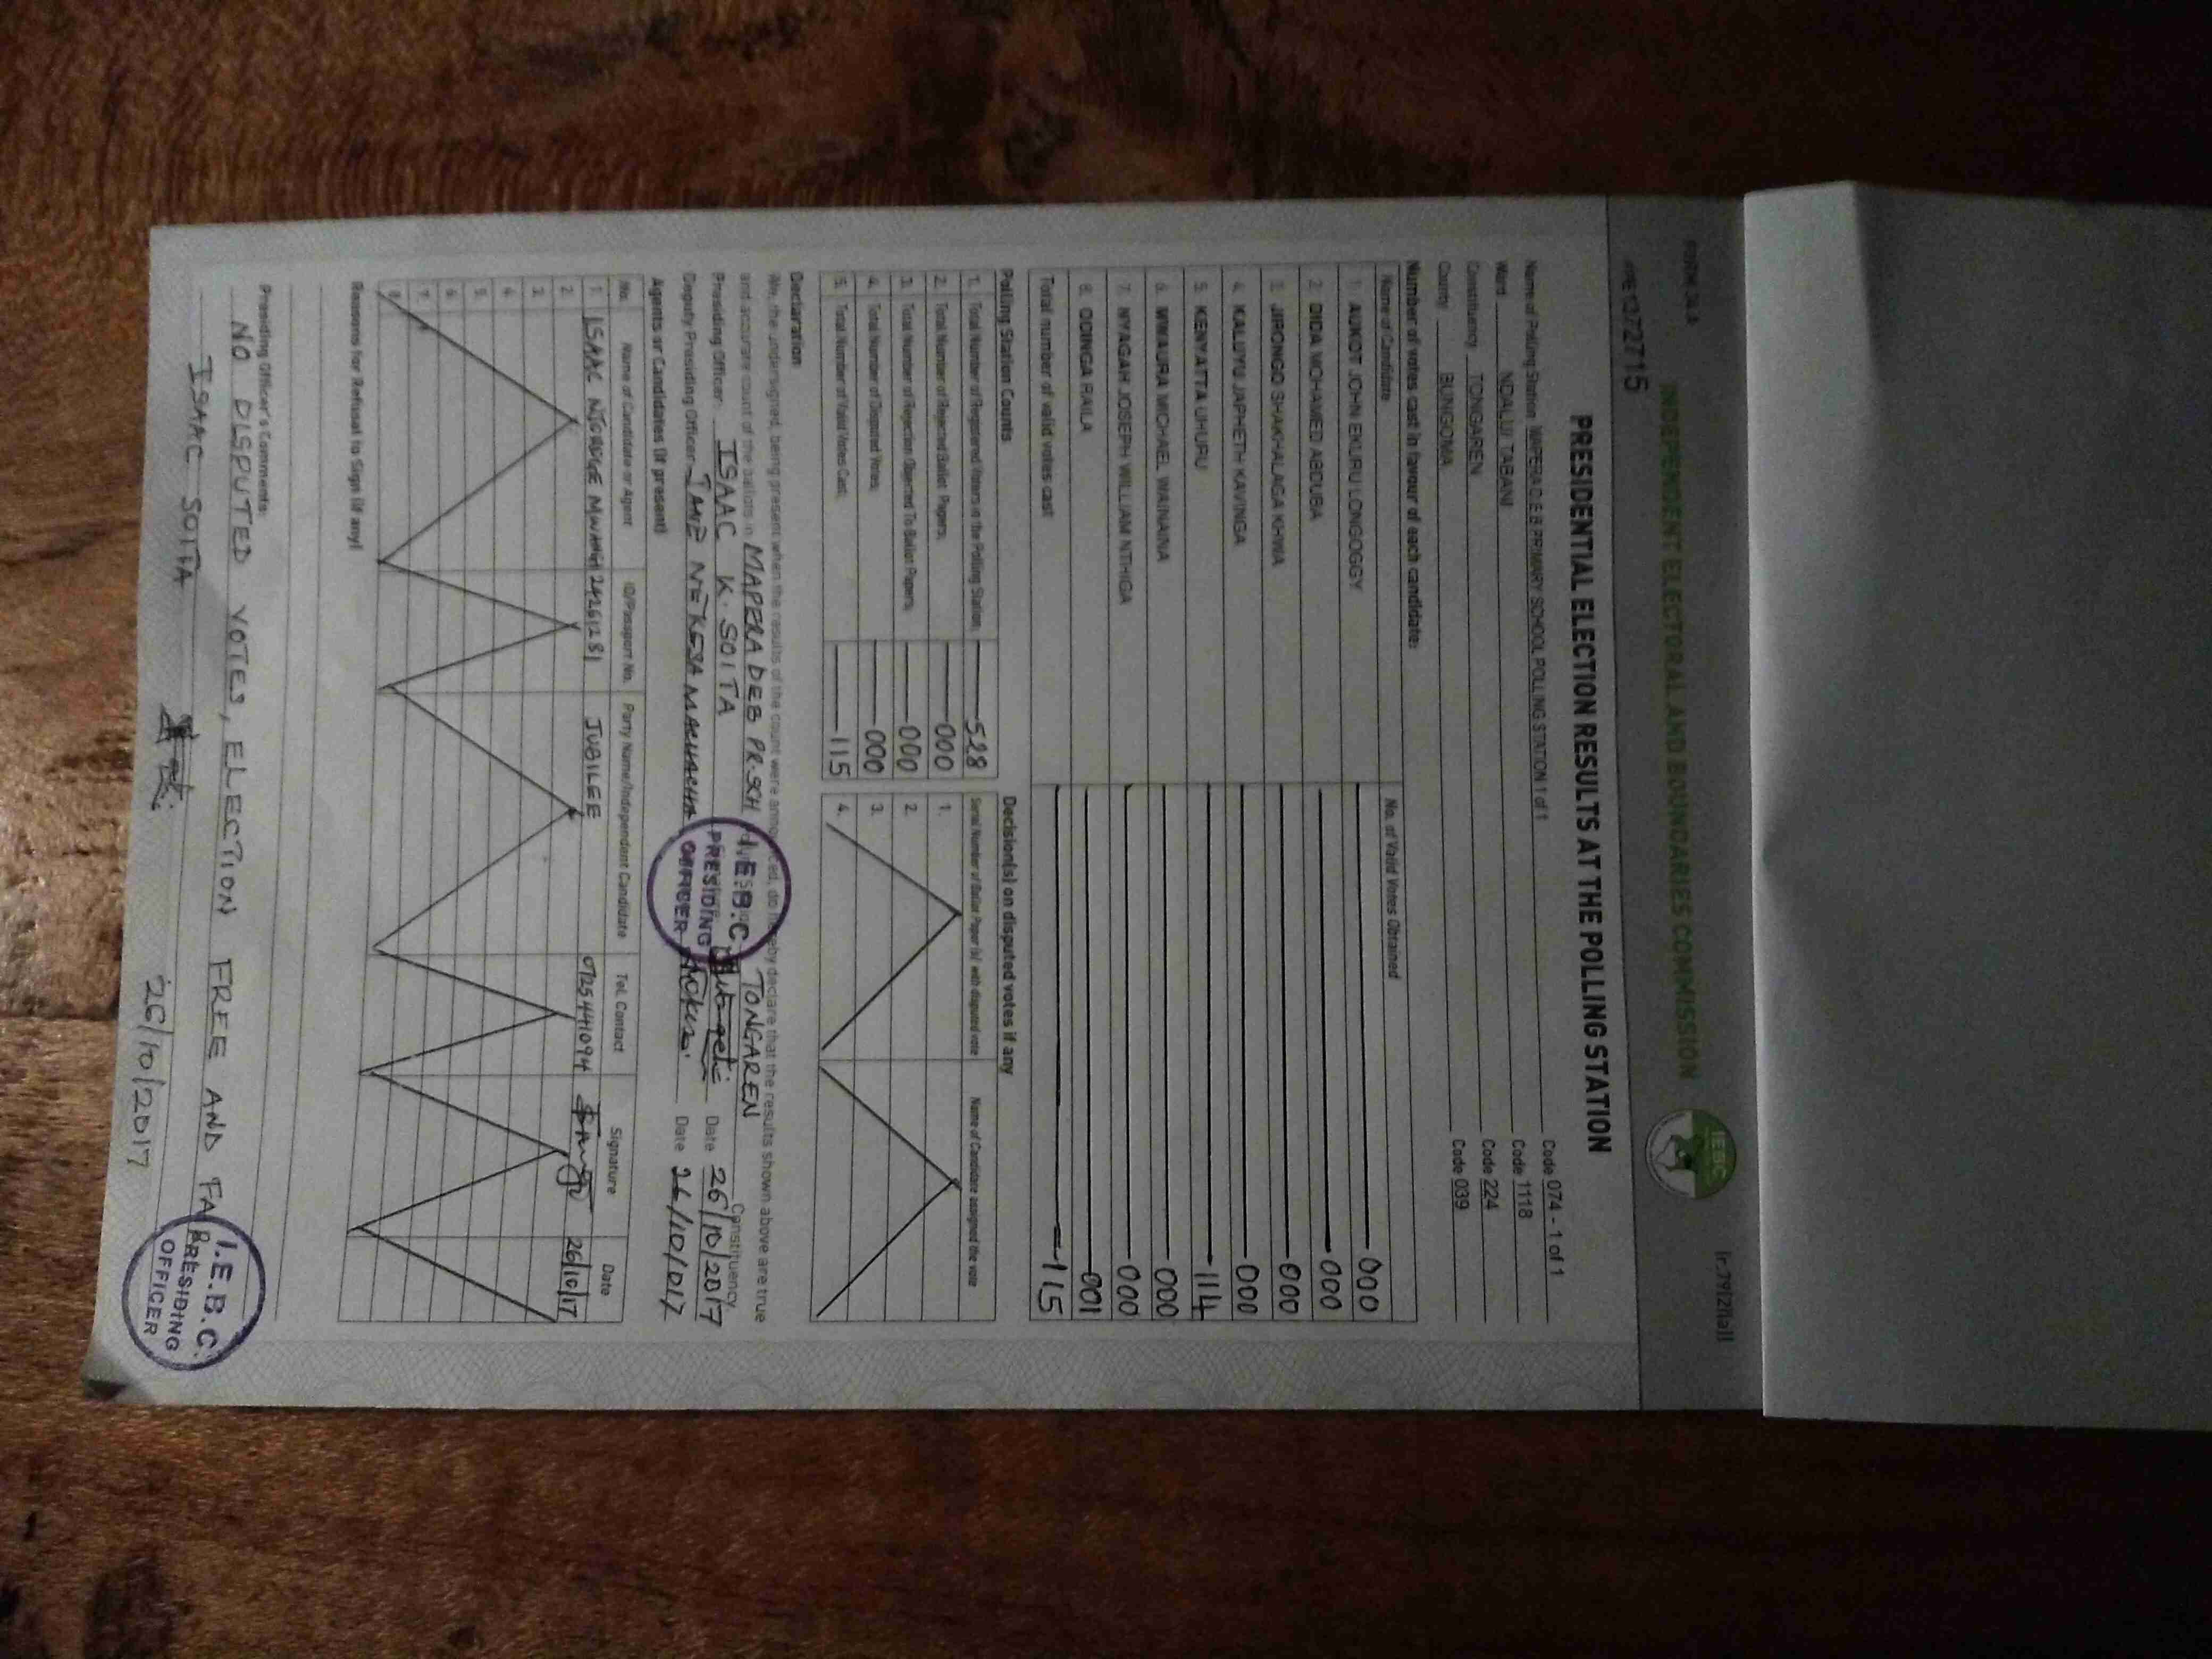 FORM 34 A
INDEPENDENT ELECTORAL AND BOUNDARIES COMMISSION
IEBC
PRESIDENTIAL ELECTION RESULTS AT THE POLLING STATION
Name of Polling Station MAPERA D.E.B PRIMARY SCHOOL POLLING STATION 1 of 1 Code 074 - 1 of 1
Ward NDALU/ TABANI Code 1118
Constituency TONGAREN Code 224
County BUNGOMA Code 039
Number of votes cast in favour of each candidate:
Name of Candidate No. of Valid Votes Obtained
1. AUKOT JOHN EKURU LONGOGGY 000
2. DIDA MOHAMED ABDUBA 000
3. JIRONGO SHAKHALAGA KHWA 000
4. KALUYU JAPHETH KAVINGA 000
5. KENYATTA UHURU 114
6. MWAURA MICHAEL WAINAINA 000
7. NYAGAH JOSEPH WILLIAM NTHIGA 000
8. ODINGA RAILA 001
Total number of valid votes cast 115
Polling Station Counts Decision(s) on disputed votes if any
Serial Number of Ballot Paper (s) with disputed vote Name of Candidate assigned the vote
1. Total Number of Registered Voters in the Polling Station; 528 1.
2. Total Number of Rejected Ballot Papers; 000 2.
3. Total Number of Rejection Objected To Ballot Papers; 000 3.
4. Total Number of Disputed Votes; 000 4.
5. Total Number of Valid Votes Cast; 115
Declaration
We, the undersigned, being present when the results of the count were announced, do hereby declare that the results shown above are true
and accurate count of the ballots in MAPERA DEB PR.SCH TONGAREN Constituency
Presiding Officer: ISAAC K. SOITA Date 26/10/2017
Deputy Presiding Officer JANE NEKESA Date 26/10/017
I.E.B.C
PRESIDING
OFFICER
Agents or Candidates (if present)
No. Name of Candidate or Agent ID/Passport No. Party Name/Independent Candidate Tel. Contact Signature Date
1. ISAAC NJOROGE MWANGI 24261281 JUBILEE 0725441094 26/10/17
2.
3.
4.
5.
6.
7.
8.
Reasons for Refusal to Sign (if any)
Presiding Officer's Comments:
NO DISPUTED VOTES, ELECTION FREE AND FAIR
ISAAC SOITA 26/10/2017
I.E.B.C.
PRESIDING
OFFICER